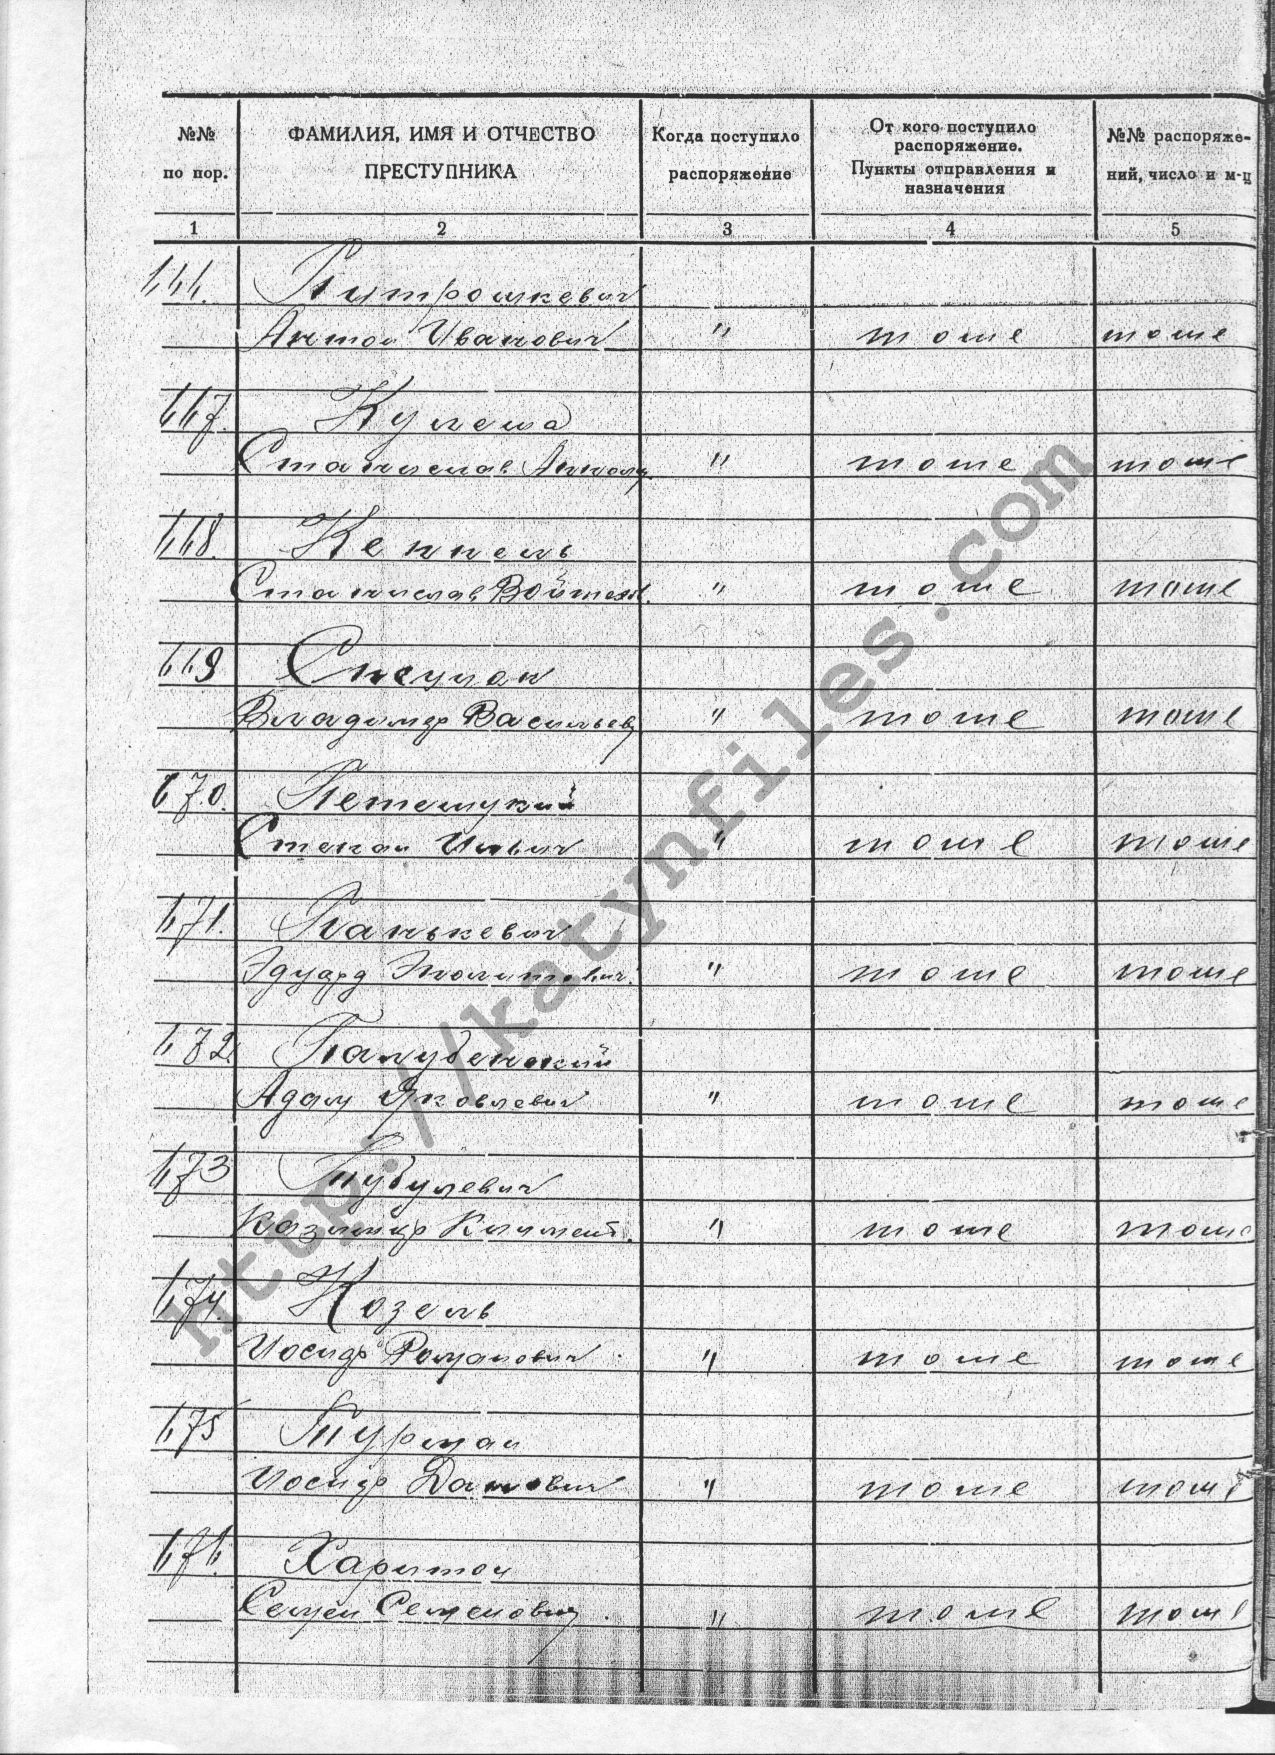 №№ по пор.
ФАМИЛИЯ, ИМЯ И ОТЧЕСТВО ПРЕСТУПНИКА
Когда поступило распоряжение
От кого поступило распоряжение. Пункты отправления и назначения
№№ распоряжений, число и м-ц
1 2 3 4 5
666. Питрошкевич
Антон Иванович " тоше тоше
667. Кулеша
Станислав " тоше тоше
668. Кеппель
Станислав Войтехов. " тоше тоше
669
Владимир Васильев " тоше тоше
670.
Степан " тоше тоше
671. Панькевич
Эдуард " тоше тоше
672 Палубенский
Адам Яковлевич " тоше тоше
673
Казимир Климент. " тоше тоше
674. Козель
Иосиф Романович " тоше тоше
675 Турман
Иосиф " тоше тоше
676. Харитон
Семен Семенович " тоше тоше
http://katynfiles.com